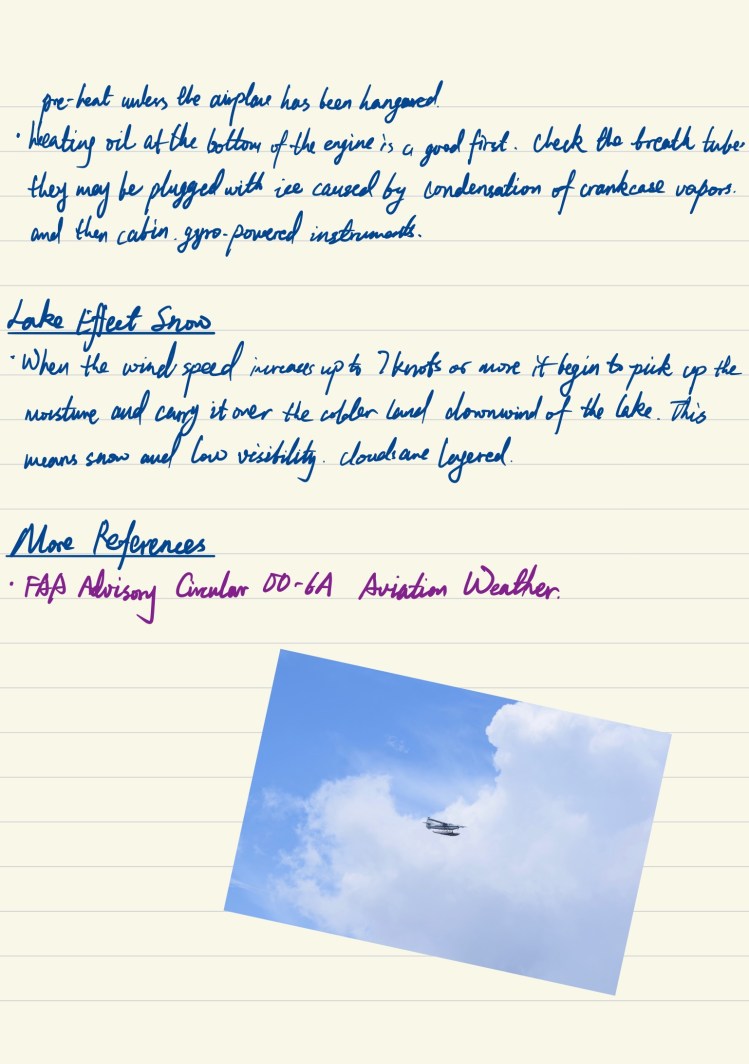 pre-heat unless the airplane has been hangared.
· heating oil at the bottom of the engine is a good first. Check the breath tube
they may be plugged with ice caused by condensation of crankcase vapors.
and then cabin. gyro-powered instruments.
Lake Effect Snow
· When the wind speed increases up to 7 knots or more it begin to pick up the
moisture and carry it over the colder land downwind of the lake. This
means snow and low visibility. clouds are layered.
More References
· FAA Advisory Circular 00-6A Aviation Weather.